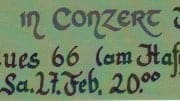 in Conzert
ues 66 (am Haf
Sa. 27. Feb. 20.00